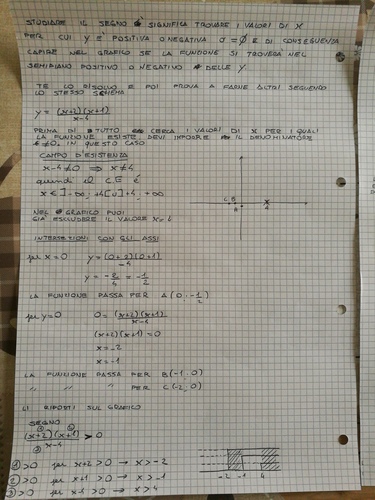 STUDIARE IL SEGNO SIGNIFICA TROVARE I VALORI DI X
PER CUI Y E' POSITIVA O NEGATIVA O =0 E DI CONSEGUENZA
CAPIRE NEL GRAFICO SE LA FUNZIONE SI TROVERA' NEL
SEMIPIANO POSITIVO O NEGATIVO DELLE Y.
TE LO RISOLVO E POI PROVA A FARNE ALTRI SEGUENDO
LO STESSO SCHEMA
y = (x+2)(x+1)
x-4
PRIMA DI TUTTO CERCA I VALORI DI X PER I QUALI
LA FUNZIONE ESISTE. DEVI IMPORRE IL DENOMINATORE
≠0. IN QUESTO CASO
CAMPO D'ESISTENZA
x-4≠0 ⇒ x≠4
quindi il CE è
x∈]-∞; +4[∪]+4, +∞
NEL GRAFICO PUOI
GIA' ESCLUDERE IL VALORE X=4
C B A 4
INTERSEZIONI CON GLI ASSI
per x=0 y=(0+2)(0+1)
-4
y = -2/4 = -1/2
LA FUNZIONE PASSA PER A(0;-1/2)
per y=0 0=(x+2)(x+1)
x-4
(x+2)(x+1)=0
x=-2
x=-1
LA FUNZIONE PASSA PER B(-1;0)
" " " PER C(-2;0)
LI RIPORTI SUL GRAFICO
SEGNO
① ②
(x+2)(x+1) > 0
③ x-4
① >0 per x+2>0 → x>-2
② >0 per x+1>0 → x>-1
③ >0 per x-4>0 → x>4
-2 -1 4